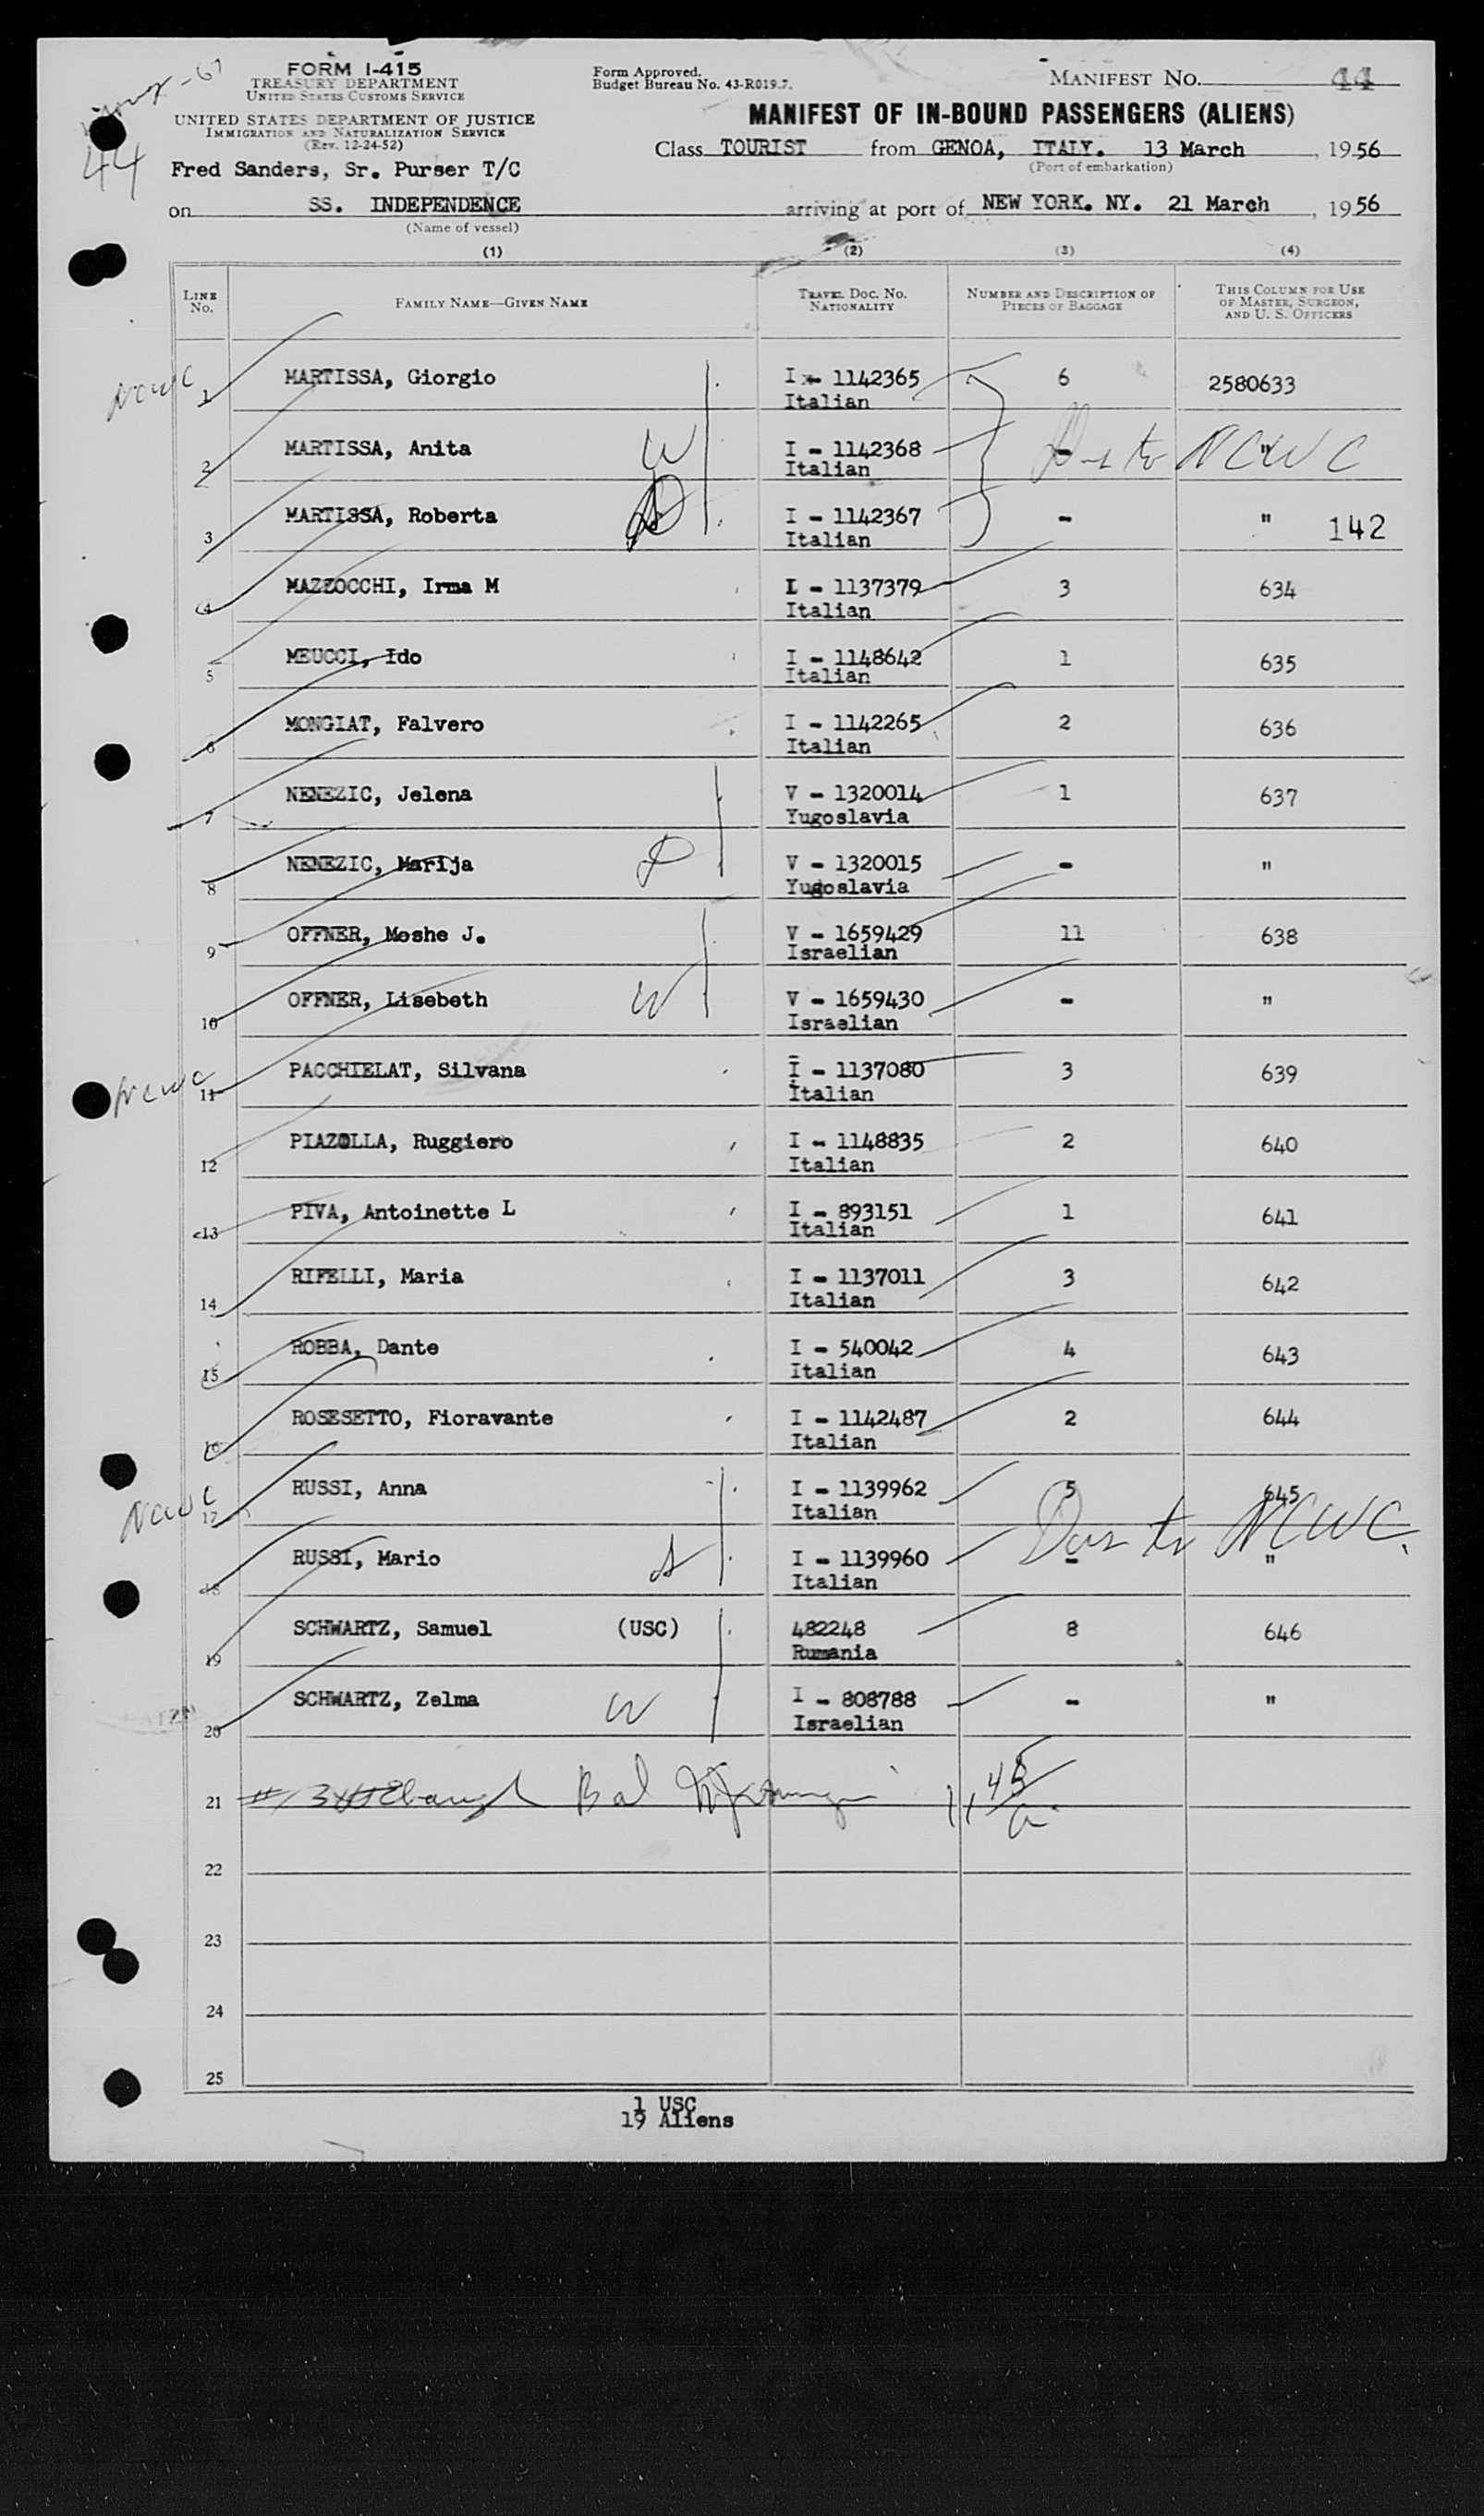 FORM I-415
TREASURY DEPARTMENT
UNITED STATES CUSTOMS SERVICE
UNITED STATES DEPARTMENT OF JUSTICE
IMMIGRATION AND NATURALIZATION SERVICE
(Rev. 12-24-52)
Form Approved.
Budget Bureau No. 43-R019.7.
MANIFEST NO. 44
MANIFEST OF IN-BOUND PASSENGERS (ALIENS)
44
Class TOURIST from GENOA, ITALY. 13 March, 1956
(Port of embarkation)
Fred Sanders, Sr. Purser T/C
on SS. INDEPENDENCE arriving at port of NEW YORK. NY. 21 March, 1956
(Name of vessel)
(1) (2) (3) (4)
LINE NO. FAMILY NAME—GIVEN NAME TRAVEL DOC. NO. NATIONALITY NUMBER AND DESCRIPTION OF PIECES OF BAGGAGE THIS COLUMN FOR USE OF MASTER, SURGEON, AND U. S. OFFICERS
NCWC 1 MARTISSA, Giorgio I - 1142365 6 2580633
Italian
2 MARTISSA, Anita W I - 1142368 - "
Italian
NCWC
3 MARTISSA, Roberta D I - 1142367 - " 142
Italian
4 MAZZOCCHI, Irma M I - 1137379 3 634
Italian
5 MEUCCI, Ido I - 1148642 1 635
Italian
6 MONGIAT, Falvero I - 1142265 2 636
Italian
7 NENEZIC, Jelena V - 1320014 1 637
Yugoslavia
8 NENEZIC, Marija D V - 1320015 - "
Yugoslavia
9 OFFNER, Moshe J. V - 1659429 11 638
Israelian
10 OFFNER, Lisebeth W V - 1659430 - "
Israelian
NCWC 11 PACCHIELAT, Silvana I - 1137080 3 639
Italian
12 PIAZOLLA, Ruggiero I - 1148835 2 640
Italian
13 PIVA, Antoinette L I - 893151 1 641
Italian
14 RIFELLI, Maria I - 1137011 3 642
Italian
15 ROBBA, Dante I - 540042 4 643
Italian
16 ROSESETTO, Fioravante I - 1142487 2 644
Italian
NCWC 17 RUSSI, Anna I - 1139962 5 645
Italian
NCWC.
18 RUSSI, Mario I - 1139960 - "
Italian
19 SCHWARTZ, Samuel (USC) 482248 8 646
Rumania
20 SCHWARTZ, Zelma W I - 808788 - "
Israelian
21
22
23
24
25
1 USC
19 Aliens